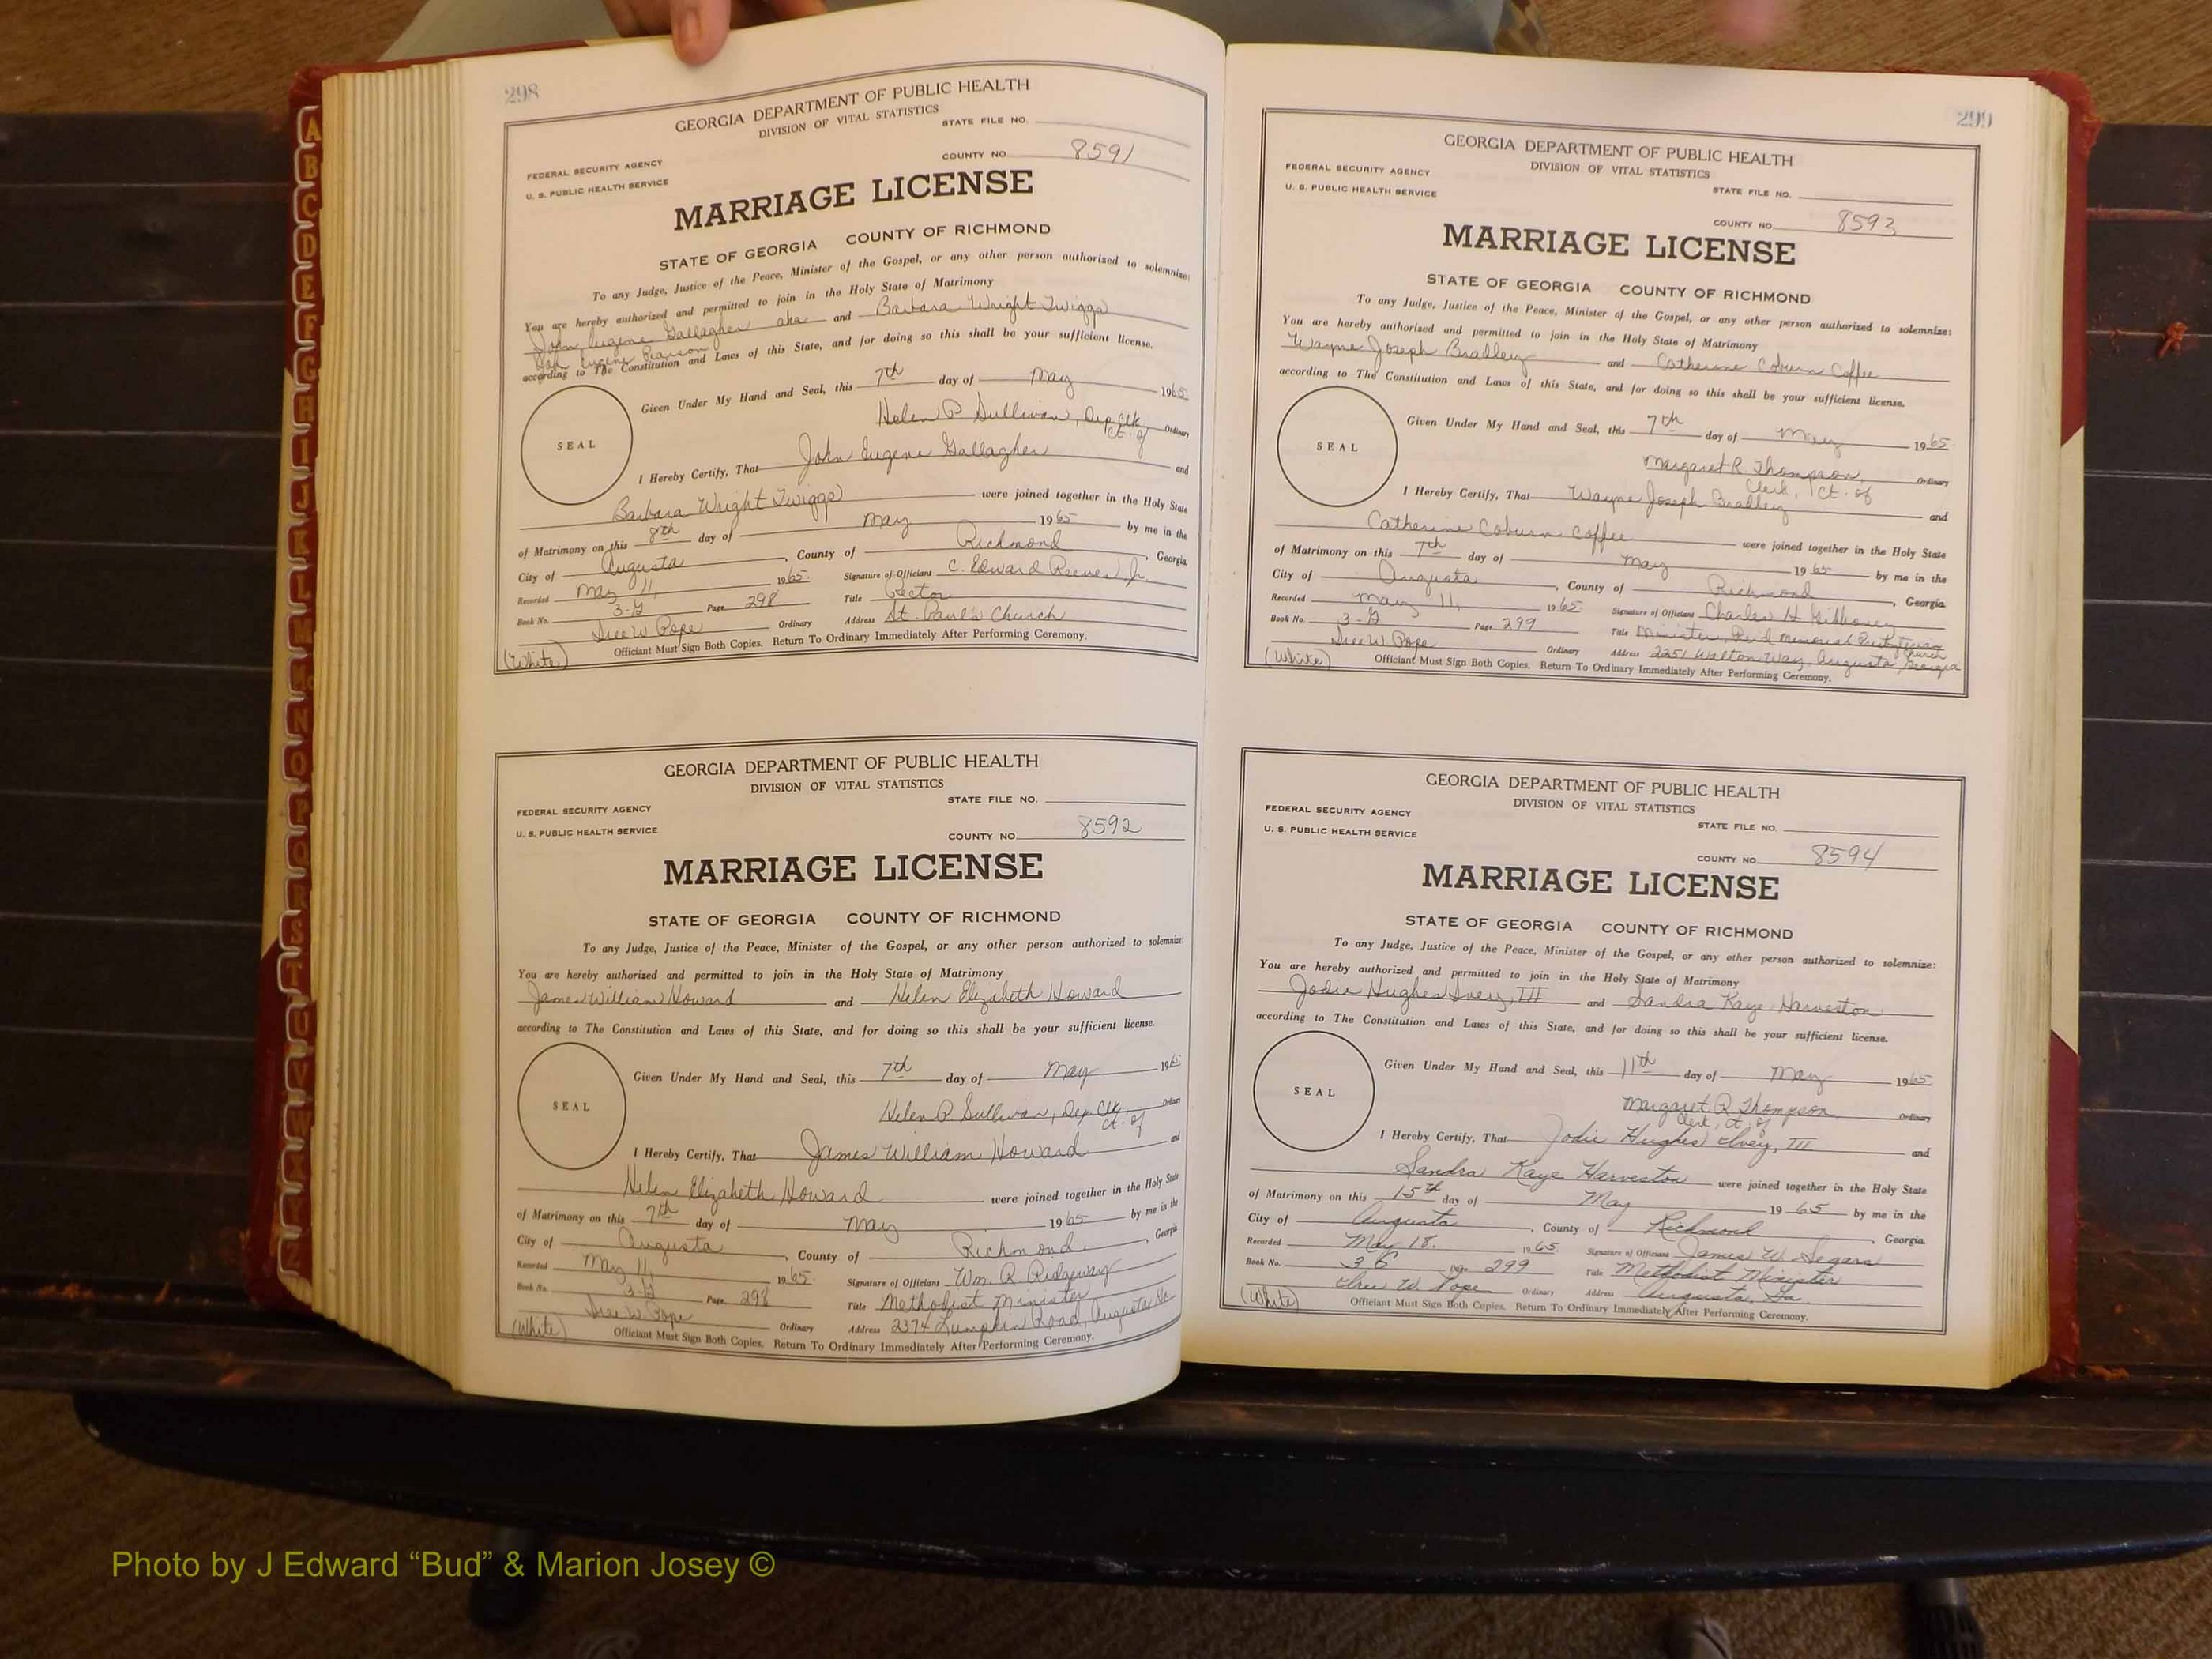 298
GEORGIA DEPARTMENT OF PUBLIC HEALTH
DIVISION OF VITAL STATISTICS
STATE FILE NO.
FEDERAL SECURITY AGENCY
U. S. PUBLIC HEALTH SERVICE
COUNTY NO. 8591
MARRIAGE LICENSE
STATE OF GEORGIA COUNTY OF RICHMOND
To any Judge, Justice of the Peace, Minister of the Gospel, or any other person authorized to solemnize:
You are hereby authorized and permitted to join in the Holy State of Matrimony
John Eugene Gallagher aka and Barbara Wright Twiggs
Eugene
according to The Constitution and Laws of this State, and for doing so this shall be your sufficient license.
Given Under My Hand and Seal, this 7th day of May 1965
SEAL
Helen P Sullivan, Dep. Clk. Ct. of Ordinary
I Hereby Certify, That John Eugene Gallagher and
Barbara Wright Twiggs were joined together in the Holy State
of Matrimony on this 8th day of May 1965 by me in the
City of Augusta, County of Richmond, Georgia
Recorded May 11, 1965. Signature of Officiant C. Edward Reeves, Jr.
Book No. 3-G Page 298 Title Rector
Iree W. Pope Ordinary Address St. Paul's Church
(White) Officiant Must Sign Both Copies. Return To Ordinary Immediately After Performing Ceremony.
GEORGIA DEPARTMENT OF PUBLIC HEALTH
DIVISION OF VITAL STATISTICS
STATE FILE NO.
FEDERAL SECURITY AGENCY
U. S. PUBLIC HEALTH SERVICE
COUNTY NO. 8592
MARRIAGE LICENSE
STATE OF GEORGIA COUNTY OF RICHMOND
To any Judge, Justice of the Peace, Minister of the Gospel, or any other person authorized to solemnize:
You are hereby authorized and permitted to join in the Holy State of Matrimony
James William Howard and Helen Elizabeth Howard
according to The Constitution and Laws of this State, and for doing so this shall be your sufficient license.
Given Under My Hand and Seal, this 7th day of May 1965
SEAL
Helen P Sullivan, Dep. Clk. Ct. of Ordinary
I Hereby Certify, That James William Howard and
Helen Elizabeth Howard were joined together in the Holy State
of Matrimony on this 7th day of May 1965 by me in the
City of Augusta, County of Richmond Georgia
Recorded May 11, 1965. Signature of Officiant Wm. R. Ridgeway
Book No. 3-G Page 298 Title Methodist Minister
Iree W. Pope Ordinary Address 2374 Lumpkin Road, Augusta Ga
(White) Officiant Must Sign Both Copies. Return To Ordinary Immediately After Performing Ceremony.
299
GEORGIA DEPARTMENT OF PUBLIC HEALTH
DIVISION OF VITAL STATISTICS
STATE FILE NO.
FEDERAL SECURITY AGENCY
U. S. PUBLIC HEALTH SERVICE
COUNTY NO. 8593
MARRIAGE LICENSE
STATE OF GEORGIA COUNTY OF RICHMOND
To any Judge, Justice of the Peace, Minister of the Gospel, or any other person authorized to solemnize:
You are hereby authorized and permitted to join in the Holy State of Matrimony
Wayne Joseph Bradley and Catherine Coburn Coffee
according to The Constitution and Laws of this State, and for doing so this shall be your sufficient license.
Given Under My Hand and Seal, this 7th day of May 1965
SEAL
Margaret R. Thompson, Clerk, Ct. of Ordinary
I Hereby Certify, That Wayne Joseph Bradley and
Catherine Coburn Coffee were joined together in the Holy State
of Matrimony on this 7th day of May 1965 by me in the
City of Augusta, County of Richmond, Georgia.
Recorded May 11, 1965. Signature of Officiant Charles H. Gibboney
Book No. 3-G Page 299 Title Minister, Reid Memorial Presbyterian Church
Iree W. Pope Ordinary Address 2251 Walton Way, Augusta, Georgia
(White) Officiant Must Sign Both Copies. Return To Ordinary Immediately After Performing Ceremony.
GEORGIA DEPARTMENT OF PUBLIC HEALTH
DIVISION OF VITAL STATISTICS
STATE FILE NO.
FEDERAL SECURITY AGENCY
U. S. PUBLIC HEALTH SERVICE
COUNTY NO. 8594
MARRIAGE LICENSE
STATE OF GEORGIA COUNTY OF RICHMOND
To any Judge, Justice of the Peace, Minister of the Gospel, or any other person authorized to solemnize:
You are hereby authorized and permitted to join in the Holy State of Matrimony
Jodie Hughes Ivey, III and Sandra Kaye Harveston
according to The Constitution and Laws of this State, and for doing so this shall be your sufficient license.
Given Under My Hand and Seal, this 11th day of May 1965
SEAL
Margaret R. Thompson, Clerk, Ct. of Ordinary
I Hereby Certify, That Jodie Hughes Ivey, III and
Sandra Kaye Harveston were joined together in the Holy State
of Matrimony on this 15th day of May 1965 by me in the
City of Augusta, County of Richmond, Georgia.
Recorded May 18. 1965. Signature of Officiant James W. Segars
Book No. 3 G Page 299 Title Methodist Minister
Iree W. Pope Ordinary Address Augusta, Ga.
(White) Officiant Must Sign Both Copies. Return To Ordinary Immediately After Performing Ceremony.
A
B
C
D
E
F
G
H
I
J
K
L
M
Mc
N
O
P
Q
R
S
T
U
V
W
Photo by J Edward “Bud” & Marion Josey ©